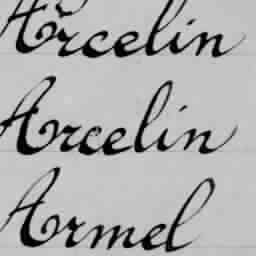 Arcelin
Arcelin
Armel